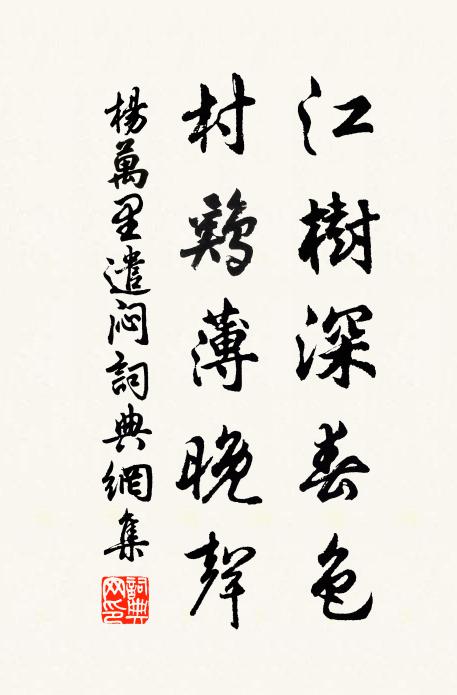 江樹深春色
村鷄薄晚聲
楊萬里遣闷詞典網集
詞典网印